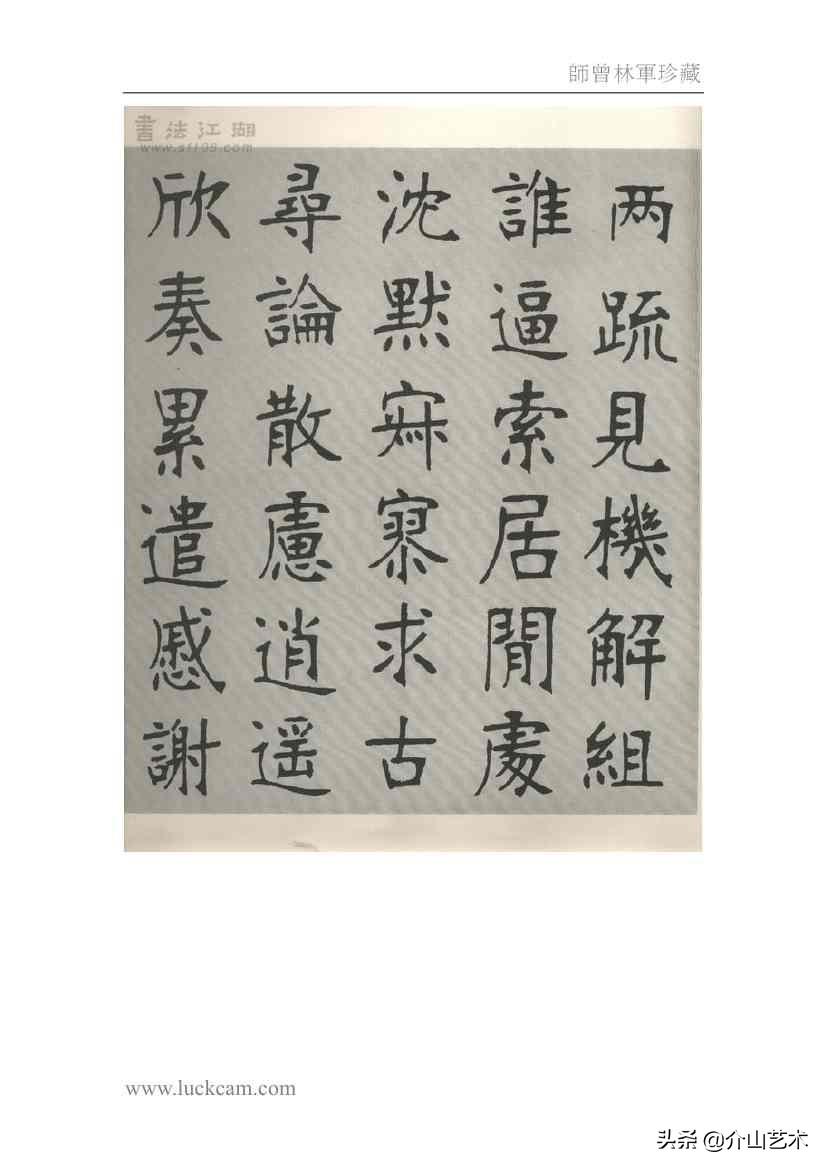 師曾林軍珍藏
書法江湖
www.sf199.com
两疏見機解組
誰逼索居閒處
沈默寂寥求古
尋論散慮逍遥
欣奏累遣慼謝
www.luckcam.com
头条 @介山艺术